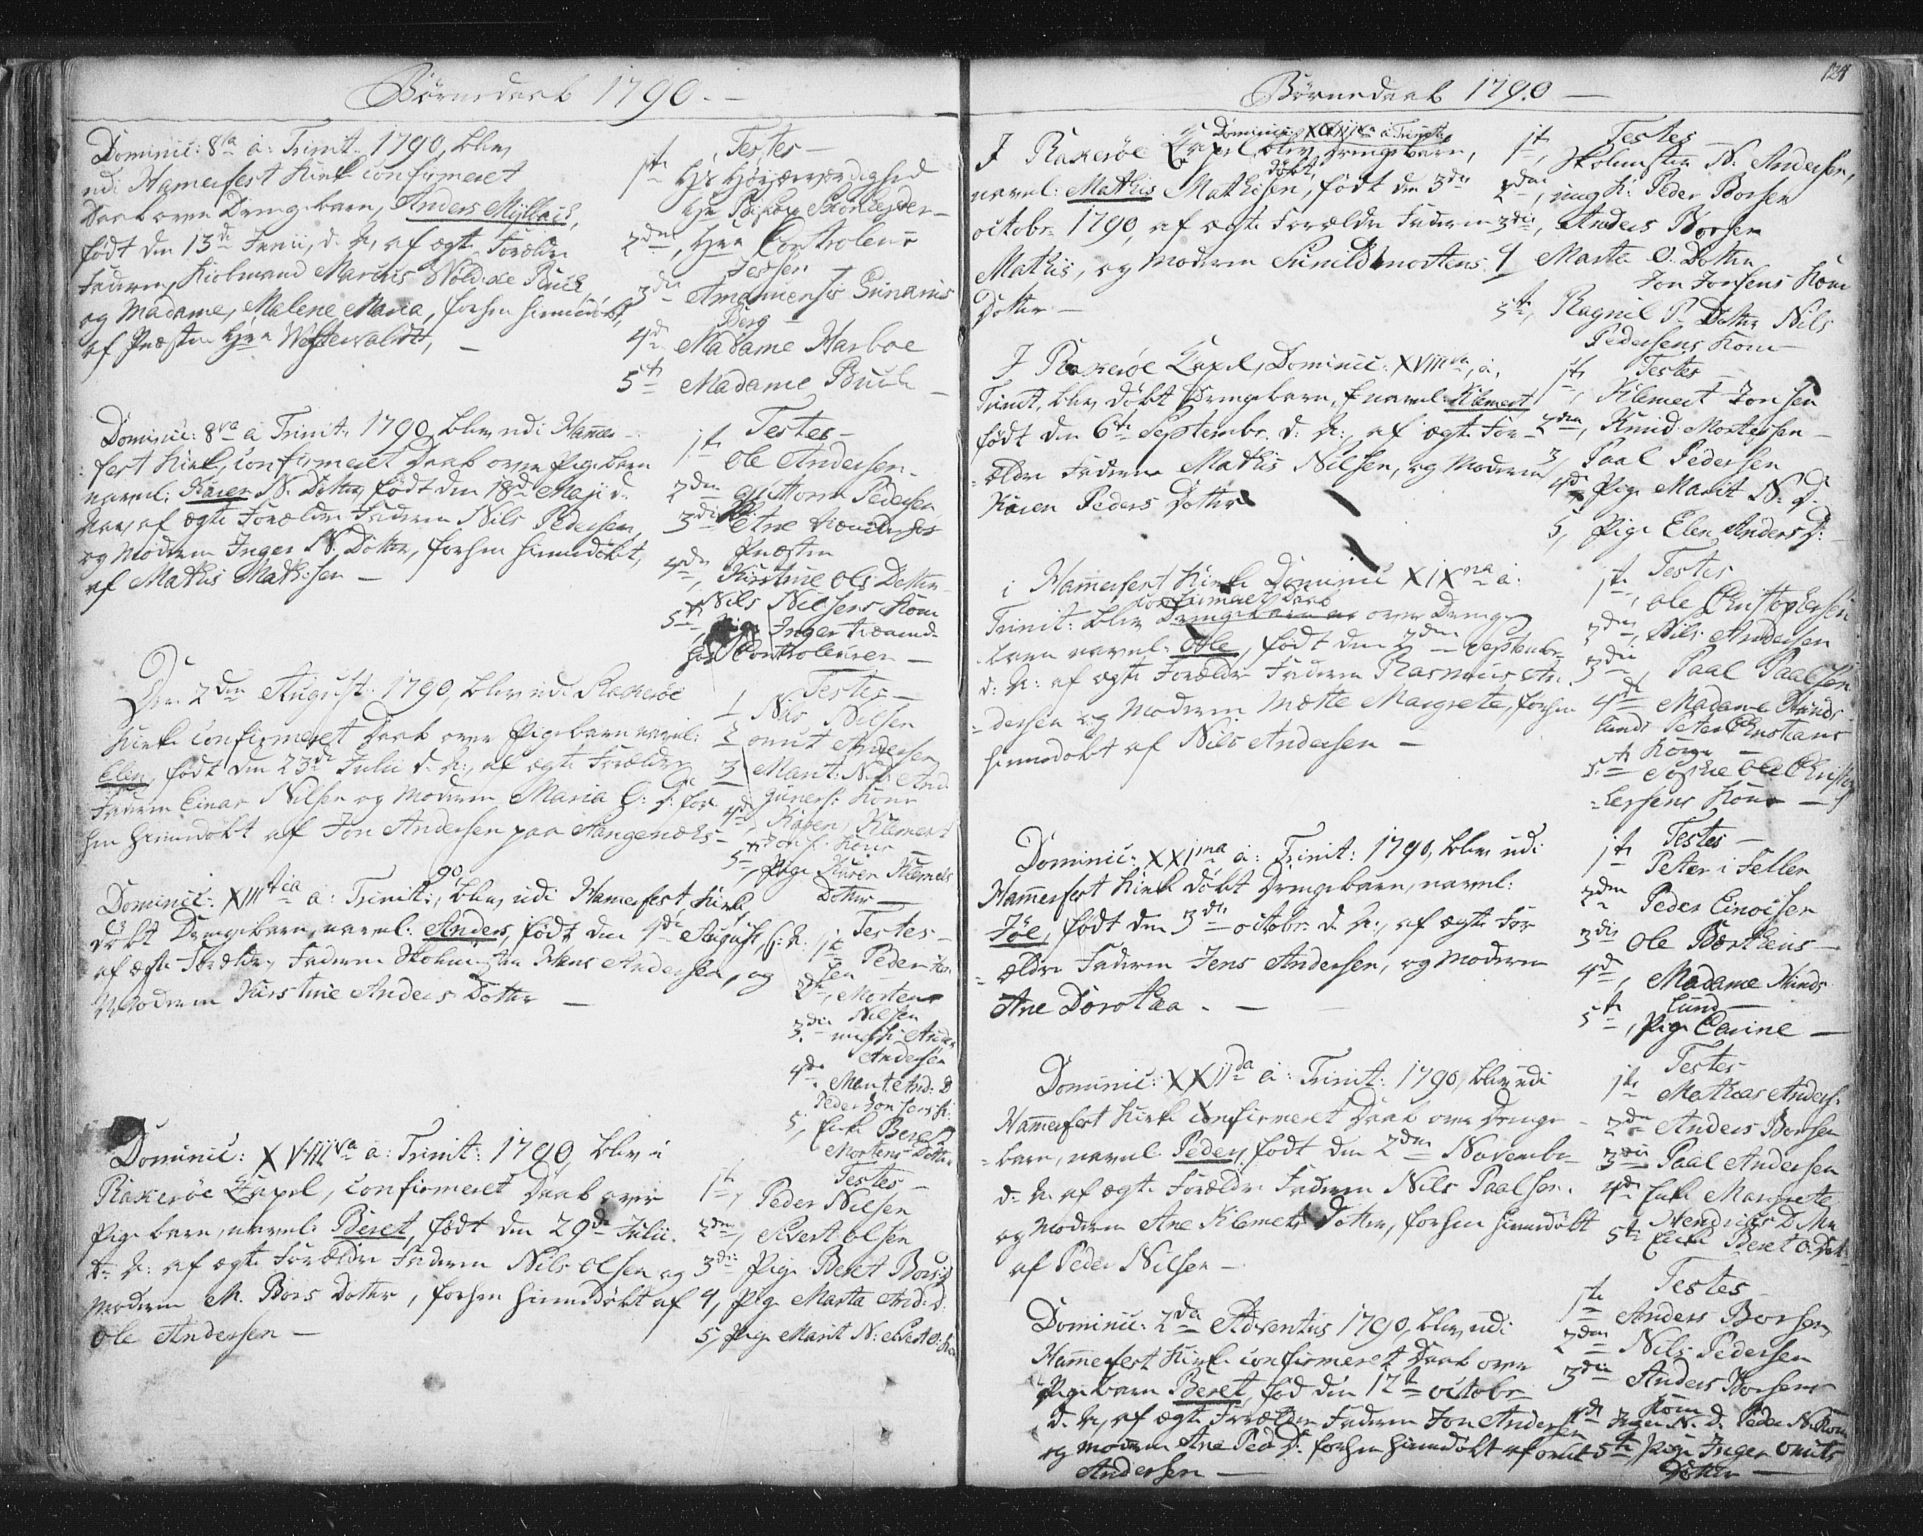 Börnedaab 1790.
Dominic: 8va à: Trinit: 1790, blev
udi Hamerfest Kirk confirmeret
Daab over Drengebarn, Anders Mylbach,
født den 13de Junii, d: A, af ægte Forældre
Faderen, Kiobmand Marcus Noldeke Buck,
og Madame, Malene Maria, forhen hiemdøbt,
af Præsten Hrr Westerwaldt,
Testes
1ste Hs Høiærværdighed
Hr Biskop Schönheyder
2den, Hrr Controleur
Jessen
3die Amanuensis Gunarius
Berg
4de Madame Harboe
5te Madame Buck
Dominic: 8va à Trinit: 1790, blev udi Hamer-
fest Kirk, confirmeret Daab over Pigebarn
navnl: Karen N. Dotter, født den 18de Maji d:
Aar, af ægte Forældre Faderen Nils Pedersen,
og Moderen Inger N. Dotter, forhen hiemdøbt,
af Mathis Mathisen
Testes
1te Ole Andersen
2den Morten Pedersen
3die Ane tienendes hos
Præsten
4de, Kirstine Ols Dotter
Nils Nilsens Kone
5te Pige Inger tienend-
hos Controleuren
Den 2den August 1790, blev udi Rakeröe
Kirk confirmeret Daab over Pigebarn navnl:
Elen, født den 23de Julii d: A:, af ægte Forældre
Faderen Einar Nilsen og Moderen Maria C: D: for-
hen hiemdøbt af Jon Andersen paa Aangenæss
Testes
1 Nils Nilsen
2 Onut Andersen
3 Marit N: D: And.
Guners: Kone
4de, Karen Klemet
Jons: Kone
5te, Pige Karen Klemets
Dotter
Dominic: XIIItia à: Trinit: 90, blev udi Hamerfest Kirk
döbt Drengebarn, navnl: Anders, født den 1ste August d: A:
af ægte Forældre, Faderen Skolmester Hans Andersen, og
Moderen Kirstine Anders Dotter
Testes
1te Peder Jon-
sen
2den, Morten
Nilsen
3die ungk: Anders
Andersen
4de Marit And: D
Peder Jonsens K:
5, Enke Beret
Mortens Dotter
Dominic: XVIIIva à: Trinit: 1790 blev i
Rakeröe Capel, confirmeret Daab over
Pigebarn, navnl: Beret, født den 29de Julii
d: A: af ægte Forældre Faderen Nils Olsen og
Moderen M. Bors Dotter, forhen hiemdøbt af
Ole Andersen
Testes
1te, Peder Nielsen
2den, Sivert Olsen
3die Pige Beret Bors: D
4, Pige Marta And: D:
5, Pige Marit N:
Börnedaab 1790
124
Dominic: à Trinit:
I Rakeröe Capel, blev Drengebarn,
döbt,
navnl: Mathis Mathisen, født den 3die
octobr 1790, af ægte Forældre Faderen
Mathis, og Moderen Sunild Mortens
Dotter
Testes
1te, Skolmester N: Andersen,
2den, ung K: Peder Borsen
3die, Anders Borsen
4 Marte O. Dotter
Jon Jonsens Kone
5te, Ragnil P. Dotter Nils
Pedersens Kone
I Rakeröe Capel, Dominic: XVIIIva, à,
Trinit, blev döbt Drengebarn, navnl: Klemet
født den 6te Septembr: d: A:, af ægte For-
ældre Faderen Mathis Nilsen, og Moderen
Karen Peders Dotter
Testes
1te, Klemet Jonsen
2den, Knud Mortensen
3, Paal Pedersen
4de Pige Marit N: D:
5, Pige Elen Anders D:
i Hamerfest Kirk Dominic XIXna à:
Trinit: blev confirmeret Daab over Drenge-
barn navnl: Ole, født den 2den Septembr
d: A: af ægte Forældre Faderen Rasmus An-
dersen og Moderen Mette Margrete, forhen
hiemdøbt af Nils Andersen
Testes
1te, Ole Christophersen
2den, Nils Andersen
3die Paal Paalsen
4de Madame Hinds-
lund Peter Christians
Kone
5te Sophie Ole Christop-
hersens Kone
Dominic: XXIma à: Trinit: 1790, blev udi
Hamerfest Kirk döbt Drengebarn, navnl:
Föe, født den 3die octobr: d. A:, af ægte For-
ældre Faderen Jens Andersen, og Moderen
Ane Dorothea
Testes
1te Peter i Feller
2den Peder Einoisen
3die Ole Bærtheus
4de, Madame Hinds-
lund
5te, Pige Carine
Dominic: XXIIda à: Trinit: 1790, blev udi
Hamerfest Kirk confirmeret Daab over Drenge-
barn, navnl: Peder, født den 2den Novembr
d: A: af ægte Forældre Faderen Nils Paalsen
og Moderen Ane Klemets Dotter, forhen hiemdøbt
af Peder Nilsen
Testes
1te Mathias Anders:
2den Anders Borsen
3die Paal Andersen
4de Enke Margrete
Hendrichs D.
5te Enke Beret O: Dot:
Dominic: 2da Adventus 1790, blev udi
Hamerfest Kirk confirmeret Daab over
Pigebarn Beret, fød den 12te octobr
d. A, af ægte Forældre Faderen Jon Andersen
og Moderen Ane Ped D: forhen hiemdøbt af Onut
Andersen
Testes
1te Anders Borsen
2den Nils Pedersen
3die Anders Borsens
Kone
4de Inger N. D. Peder N: Kone
5te Pige Inger Onuts
Dotter